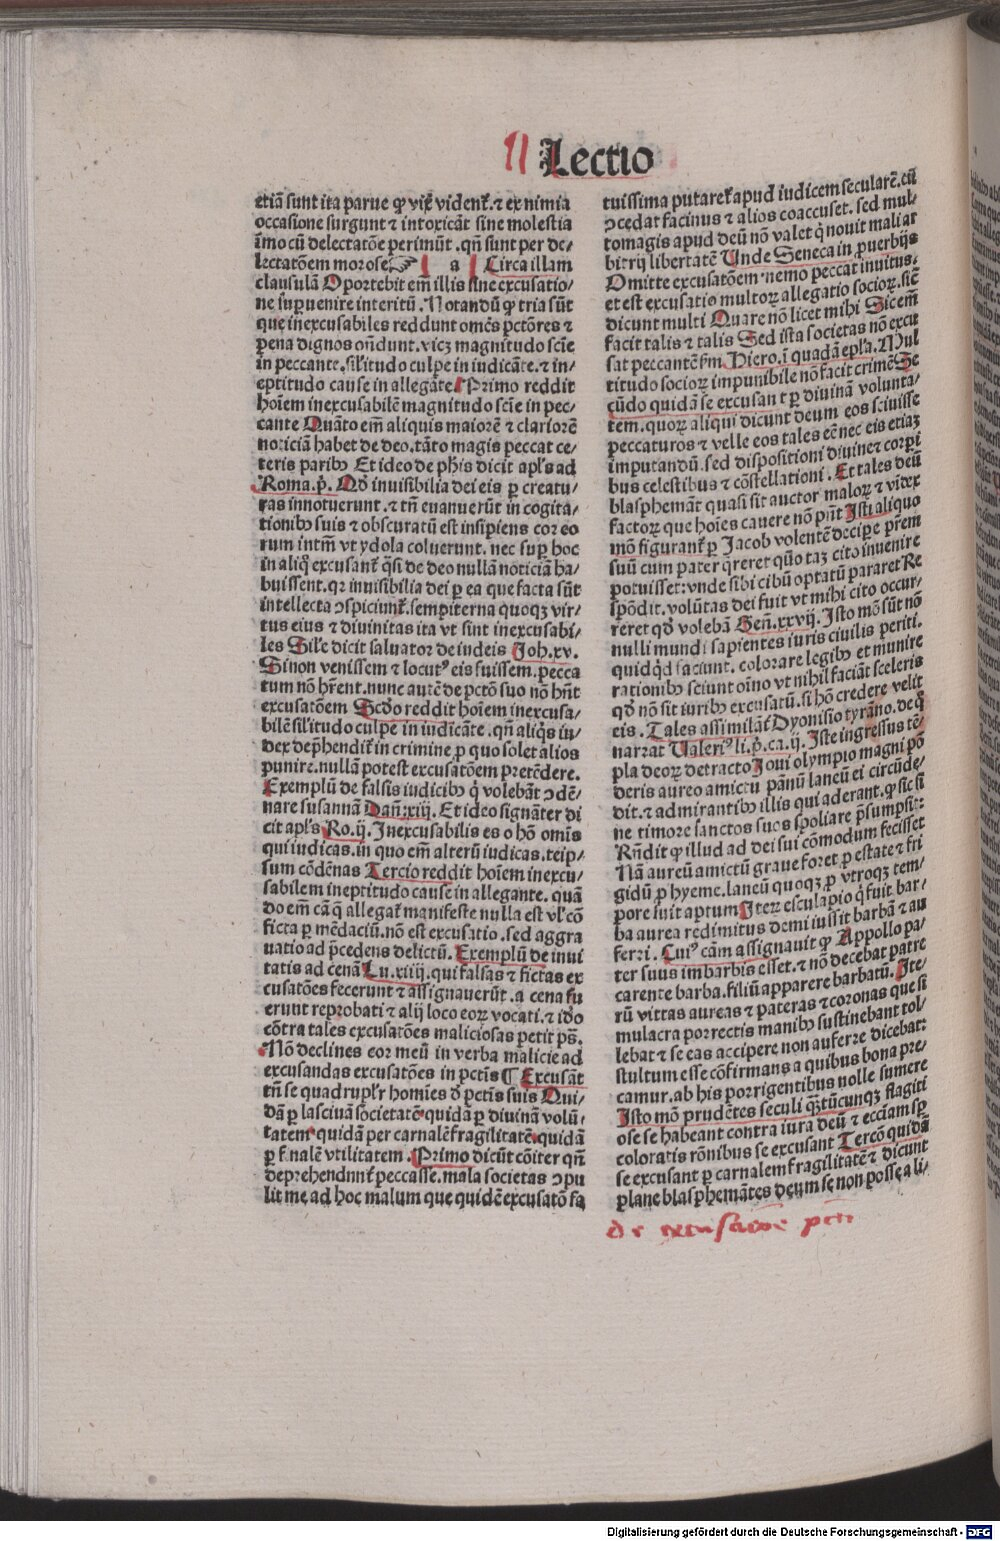 Lectio
etiã sunt ita parue ꝙ vix̃ vident̃. ⁊ ex nimia
occasione surgunt ⁊ intoxicãt sine molestia
ĩmo cũ delectatõe perimũt. qñ sunt per de⸗
lectatõem morose☞ a Circa illam
clausulã Oportebit em̃ illis sine excusatio⸗
ne supuenire interitũ. Notandũ ꝙ tria sũt
que inexcusabiles reddunt omẽs pctõres ⁊
pena dignos oñdunt. vicꝫ magnitudo scĩe
in peccante. sil̃itudo culpe in iudicãte. ⁊ in⸗
eptitudo cause in allegãte Primo reddit
hoĩem inexcusabilẽ magnitudo scĩe in pec⸗
cante Quãto em̃ aliquis maiorẽ ⁊ clariorẽ
noticiã habet de deo. tãto magis peccat ce⸗
teris paribꝰ Et ideo de ph̃is dicit apl̃s ad
Roma. p̃. Qđ inuisibilia dei eis ꝑ creatu⸗
ras innotuerunt. ⁊ tñ euanuerũt in cogita⸗
tionibꝰ suis ⁊ obscuratũ est insipiens cor eo
rum intm̃ vt ydola coluerunt. nec sup hoc
in aliq̃ excusant̃ q̃si de deo nullã noticiã ha⸗
buissent. qr inuisibilia dei ꝑ ea que facta sũt
intellecta ↄspiciunt̃. sempiterna quoqꝫ vir⸗
tus eius ⁊ diuinitas ita vt sint inexcusabi⸗
les Sil̃e dicit saluator de iudeis Joh. xv.
Si non venissem ⁊ locutꝰ eis fuissem. pecca
tum nõ hr̃ent. nunc autẽ de pctõ suo nõ hñt
excusatõem Scđo reddit hoĩem inexcusa⸗
bilẽ sil̃itudo culpe in iudicãte. qñ aliq̃s iu⸗
dex dep̃hendit̃ in crimine, ꝓ quo solet alios
punire. nullã potest excusatõem pretẽdere.
Exemplũ de falsis iudicibꝰ q̃ volebãt ↄdẽ⸗
nare susannã Dañ. xiij. Et ideo signãter di
cit apl̃s Ro. ij. Inexcusabilis es o hõ om̃is
qui iudicas. in quo em̃ alterũ iudicas. teip⸗
sum cõdẽnas Tercio reddit hoĩem inexcu⸗
sabilem ineptitudo cause in allegante. quã
do em̃ cã q̃ allegat̃ manifeste nulla est vl̃ cõ
ficta ꝑ mẽdaciũ. nõ est excusatio. sed aggra
uatio ad p̃cedens delictũ. Exemplũ de inui
tatis ad cenã Lu. xiiij. qui falsas ⁊ fictas ex
cusatões fecerunt ⁊ assignauerũt. a cena fu
erunt reprobati ⁊ alij loco eoꝝ vocati. ⁊ iđo
cõtra tales excusatões maliciosas petit p̃s.
Nõ declines cor meũ in verba malicie ad
excusandas excusatões in pctĩs ¶ Excusãt
tñ se quadruplr̃ homĩes đ pctĩs suis Qui⸗
dã ꝑ lasciuã societatẽ quidã ꝑ diuinã volũ⸗
tatem quidã per carnalẽ fragilitatẽ quidã
ꝑ f̃nalẽ vtilitatem. Primo dicũt cõiter qñ
deprehendnnt̃ peccasse. mala societas ↄpu
lit me ad hoc malum que quidẽ excusatõ fa
tuissima putaret̃ apud iudicem secularẽ. est
ↄcedat facinus ⁊ alios coaccuset. sed mul⸗
tomagis apud deũ nõ valet q̃ nouit mali ar
bitrij libertatẽ Unde Seneca in puerbijs
Omitte excusatõem nemo peccat inuitus.
et est excusatio multoꝝ allegatio socioꝝ. sič
dicunt multi Quare nõ licet mihi Sic em̃
facit talis ⁊ talis Sed ista societas nõ excu
sat peccantẽ fm̃ Hiero. ĩ quadã epl̃a. Mul
titudo socioꝝ impunibile nõ facit crimẽ Se
cũdo quidã se excusant ꝑ diuinã volunta⸗
tem. quoꝝ aliqui dicunt deum eos sciuisse
peccaturos ⁊ velle eos tales eẽ nec eis etiaꝫ
imputandũ. sed dispositioni diuine ⁊ corpi
bus celestibus ⁊ cõstellationi. Et tales deũ
blasphemãt quasi sit auctor maloꝝ ⁊ vĩdex
factoꝝ que hoĩes cauere nõ pñt Isti aliquo
mõ figurant̃ ꝑ Jacob volentẽ decipe p̃rem
suũ cum pater q̃reret quõ taꝫ cito inuenire
potuisset: vnde sibi cibũ optatũ pararet Re
spõdit. volũtas dei fuit vt mihi cito occur⸗
reret qđ volebã Geñ. xxvij. Isto mõ sũt nõ
nulli mundi sapientes iuris ciuilis periti.
quidq̃d faciunt. colorare legibꝰ et munire
rationibꝰ sciunt oĩno vt nihil faciãt sceleris
qđ nõ sit iuribꝰ excusatũ. si hõ credere velit
eis. Tales assimilant̃ Dyonisio tyrãno. de q̃
narrat Valeriꝰ li. p̃. ca. ij. Iste ingressus tẽ⸗
pla deoꝝ detracto Joui olympio magni põ
deris aureo amictu pãnũ laneũ ei circũde⸗
dit. ⁊ admirantibꝰ illis qui aderant. ꝙ sic si
ne timore sanctos suos spoliare p̃sumpsit:
Rñdit ꝙ illud ad dei sui cõmodum fecisset
Nã aureũ amictũ graue foret ꝑ estate ⁊ fri
gidũ ꝑ hyeme. laneũ quoqꝫ ꝑ vtroqꝫ tem⸗
pore fuit aptum Iteꝝ esculapio q̃ fuit bar⸗
ba aurea redimitus demi iussit barbã ⁊ au
ferri. Cuiꝰ cãm assignauit ꝙ Appollo pa⸗
ter suus imbarbis esset. ⁊ nõ decebat patre
carente barba. filiũ apparere barbatũ. Ite⸗
rũ vittas aureas ⁊ pateras ⁊ coronas que si
mulacra porrectis manibꝰ sustinebant tol⸗
lebat ⁊ se eas accipere non auferre dicebat:
stultum esse cõfirmans a quibus bona pre⸗
camur. ab his porrigentibus nolle sumere
Isto mõ prudẽtes seculi q̃ꝫtũcunqꝫ flagiti
ose se habeant contra iura deũ ⁊ ecclam sp
coloratis rõnibus se excusant Tercõ quidã
se excusant ꝑ carnalem fragilitatẽ ⁊ dicunt
plane blasphemãtes deum se non posse a li⸗
de excusacõe pctĩ
Digitalisierung gefördert durch die Deutsche Forschungsgemeinschaft - DFG